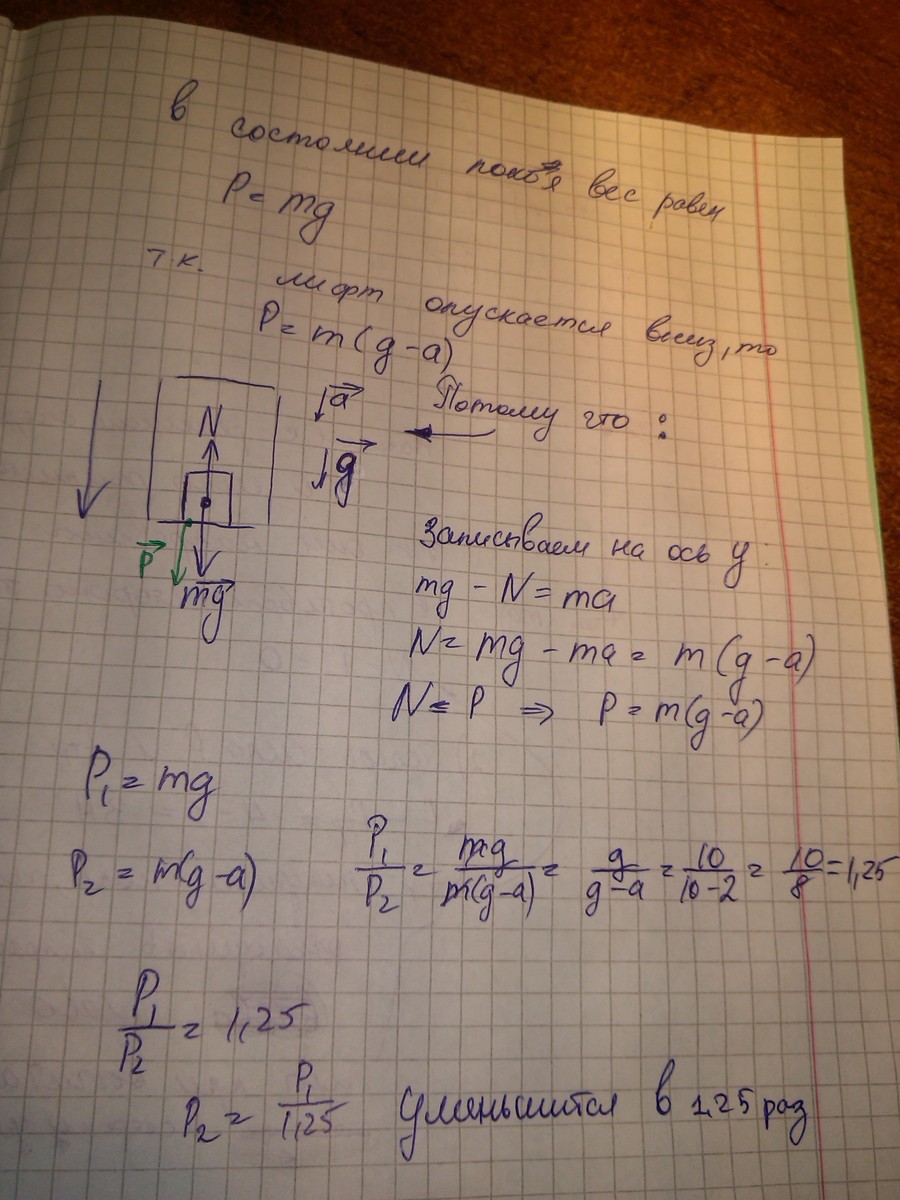 В состоянии покоя вес равен
P = mg
т.к. лифт опускается вниз, то
P = m(g-a)
N
a
g
P
mg
Потому что :
Записываем на ось y:
mg - N = ma
N = mg - ma = m(g-a)
N = P ⇒ P = m(g-a)
P₁ = mg
P₂ = m(g-a) P₁/P₂ = mg/m(g-a) = g/g-a = 10/10-2 = 10/8 = 1,25
P₁/P₂ = 1,25
P₂ = P₁/1,25 Уменьшится в 1,25 раз